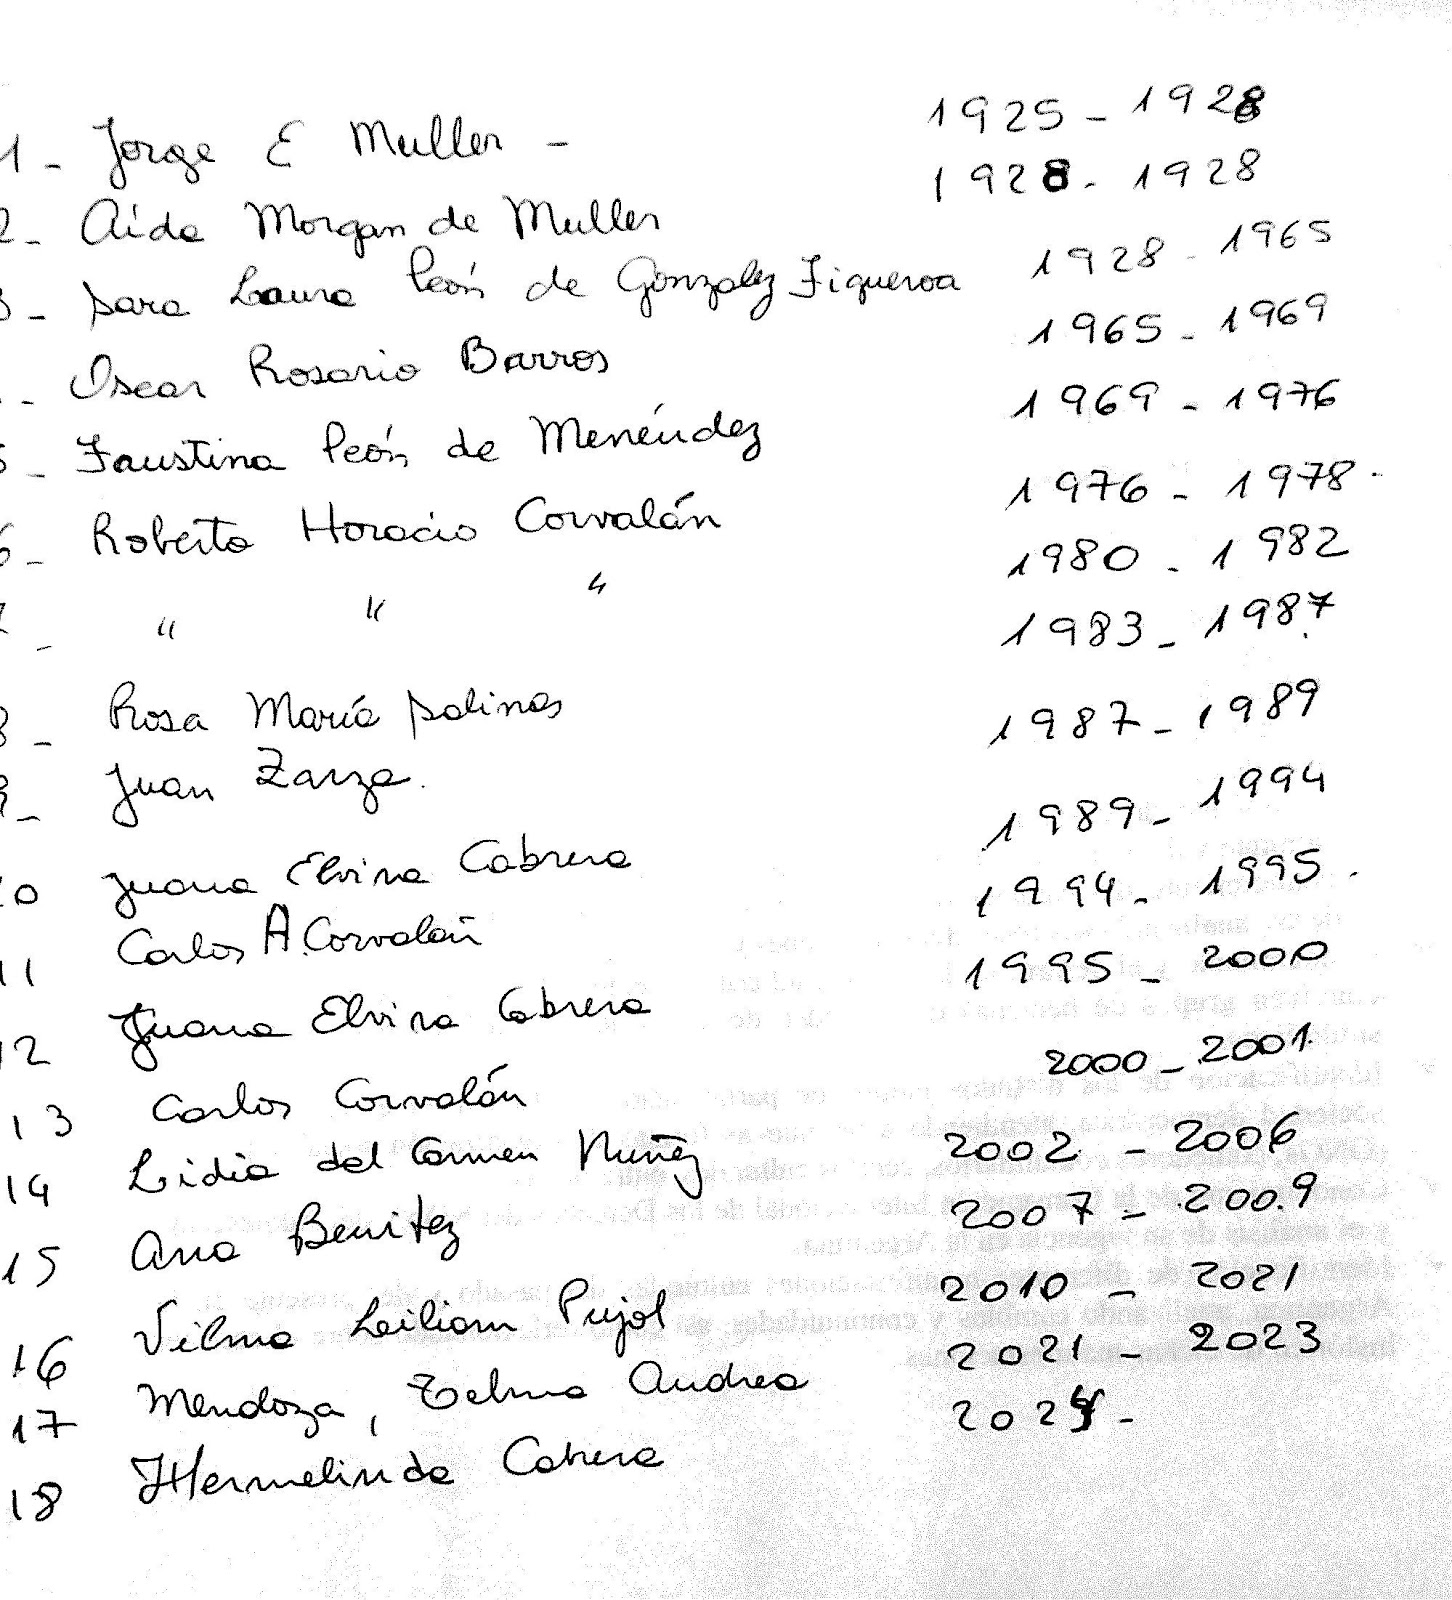 1- Jorge E Muller - 1925 - 1928
2- Aida Morgan de Muller 1928 - 1928
3- Sara Laura León de Gonzalez Figueroa 1928 - 1965
- Oscar Rosario Barros 1965 - 1969
5- Faustina León de Menéndez 1969 - 1976
6- Roberto Horacio Corvalán 1976 - 1978.
7- " " " 1980 - 1982
8- Rosa María Salinas 1983 - 1987
9- Juan Zarza. 1987 - 1989
10 Juana Elvira Cabrera 1989 - 1994
11 Carlos A. Corvalán 1994 - 1995.
12 Juana Elvira Cabrera 1995 - 2000
13 Carlos Corvalán 2000 - 2001
14 Lidia del Carmen Nuñez 2002 - 2006
15 Ana Benitez 2007 - 2009
16 Vilma Leiliam Pujol 2010 - 2021
17 Mendoza, Telma Andrea 2021 - 2023
18 Hermelinda Cabrera 2024 -